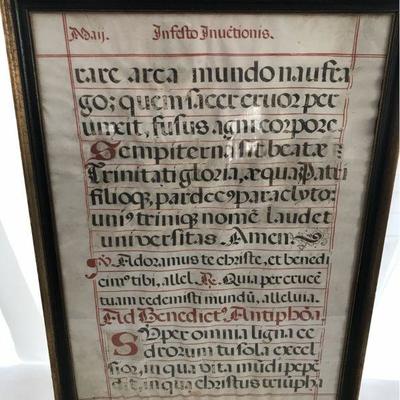 Maij. In festo Invẽtionis.
rare arca mundo naufra
go; quem sacer cruor per
unxit, fusus agni corpore.
Sempiterna sit beatæ
Trinitati gloria, æqua Patri
filioq, par decꝰ paraclyto:
uniꝰ triniq; nomẽ laudet
universitas. Amen.
℣. Adoramus te christe, et benedi
cimꝰ tibi, allel. ℟. Quia per crucẽ
tuam redemisti mundũ, alleluia.
Ad Benedictꝰ Antiphõa.
Super omnia ligna ce
drorum tu sola excel
sior, in qua vita mũdi pepẽ
dit, in qua christus triũpha